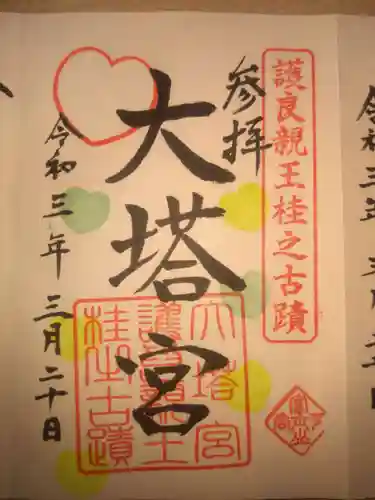 護良親王桂之古蹟
参拝
大塔宮
令和三年三月二十日
大塔宮
護良親王
桂之古蹟
令和三年三月二十日